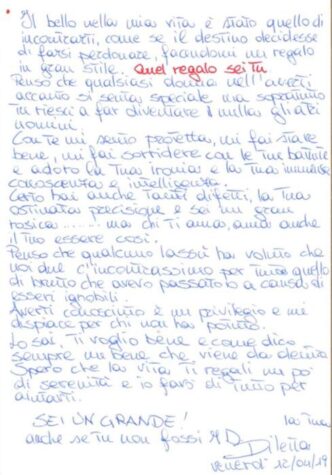 Il bello nella mia vita è stato quello di
incontrarti, come se il destino decidesse
di farsi perdonare, facendomi un regalo
in gran stile. Quel regalo sei tu.
Penso che qualsiasi donna nell'averti
accanto si senta speciale ma soprattutto
tu riesci a far diventare nulla gli altri
uomini.
Con te mi sento protetta, mi fai stare
bene, mi fai sorridere con le tue battute
e adoro la tua ironia e la tua immensa
conoscenza e intelligenza.
Certo hai anche tanti difetti, la tua
ostinata precisione e sei un gran
rosica ........ ma chi ti ama, ama anche
il tuo essere così.
Penso che qualcuno lassù ha voluto che
noi due c'incontrassimo per tutto quello
di brutto che avevo passato a causa di
esseri ignobili.
Averti conosciuto è un privilegio e mi
dispiace per chi non ha potuto.
Lo sai, ti voglio bene e come dico
sempre un bene che viene da dentro
Spero che la vita ti regali un po'
di serenità e io farò di tutto per
aiutarti.
SEI UN GRANDE! la tua
anche se tu non fossi MD Diletta
venerdì 12/04/19